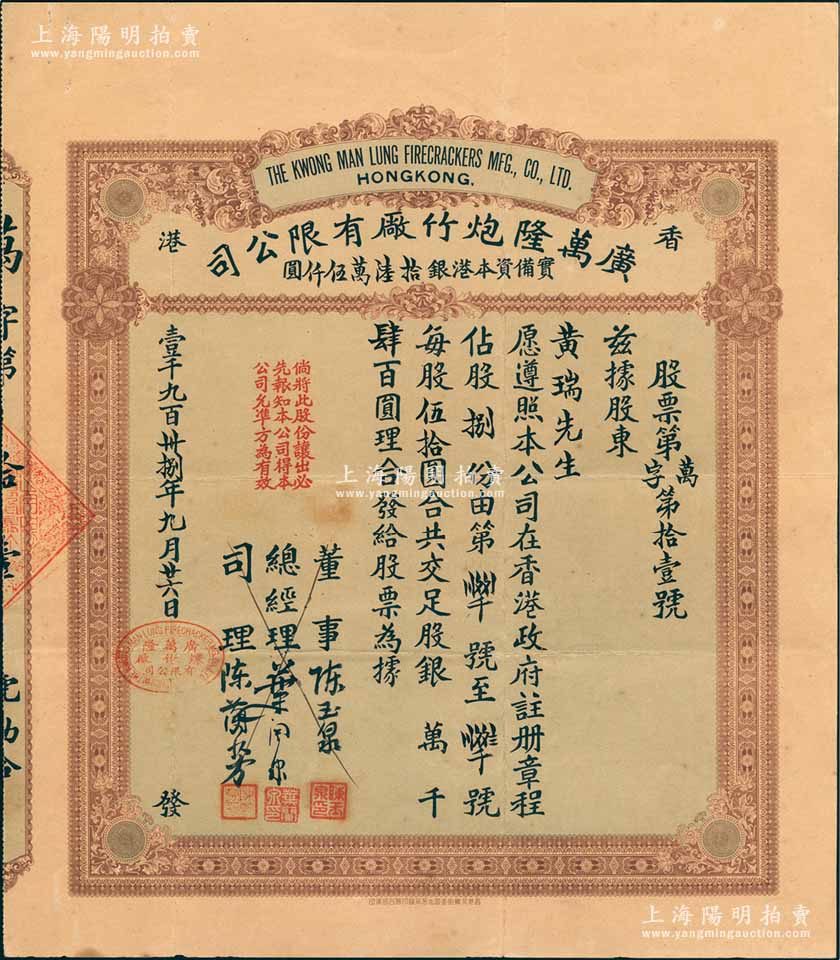 上海陽明拍賣
www.yangmingauction.com
上海陽明拍賣
www.yangmingauction.com
THE KWONG MAN LUNG FIRECRACKERS MFG., CO., LTD.
HONGKONG.
香港
廣萬隆炮竹廠有限公司
實備資本港銀拾陸萬伍仟圓
股票第萬字第拾壹號
茲據股東
黃瑞先生
愿遵照本公司在香港政府註册章程
佔股捌份由第 號至 號
每股伍拾圓合共交足股銀 萬 千
肆百圓理合發給股票為據
董事陈玉泉
總經理葉
司理陈
倘將此股份讓出必
先報知本公司得本
公司允準方為有效
壹千九百卅捌年九月廿六日
發
廣萬隆
爆竹廠
有限公司
萬字第拾壹號
上海陽明拍賣
www.yangmingauction.com
上海陽明拍賣
www.yangmingauction.com